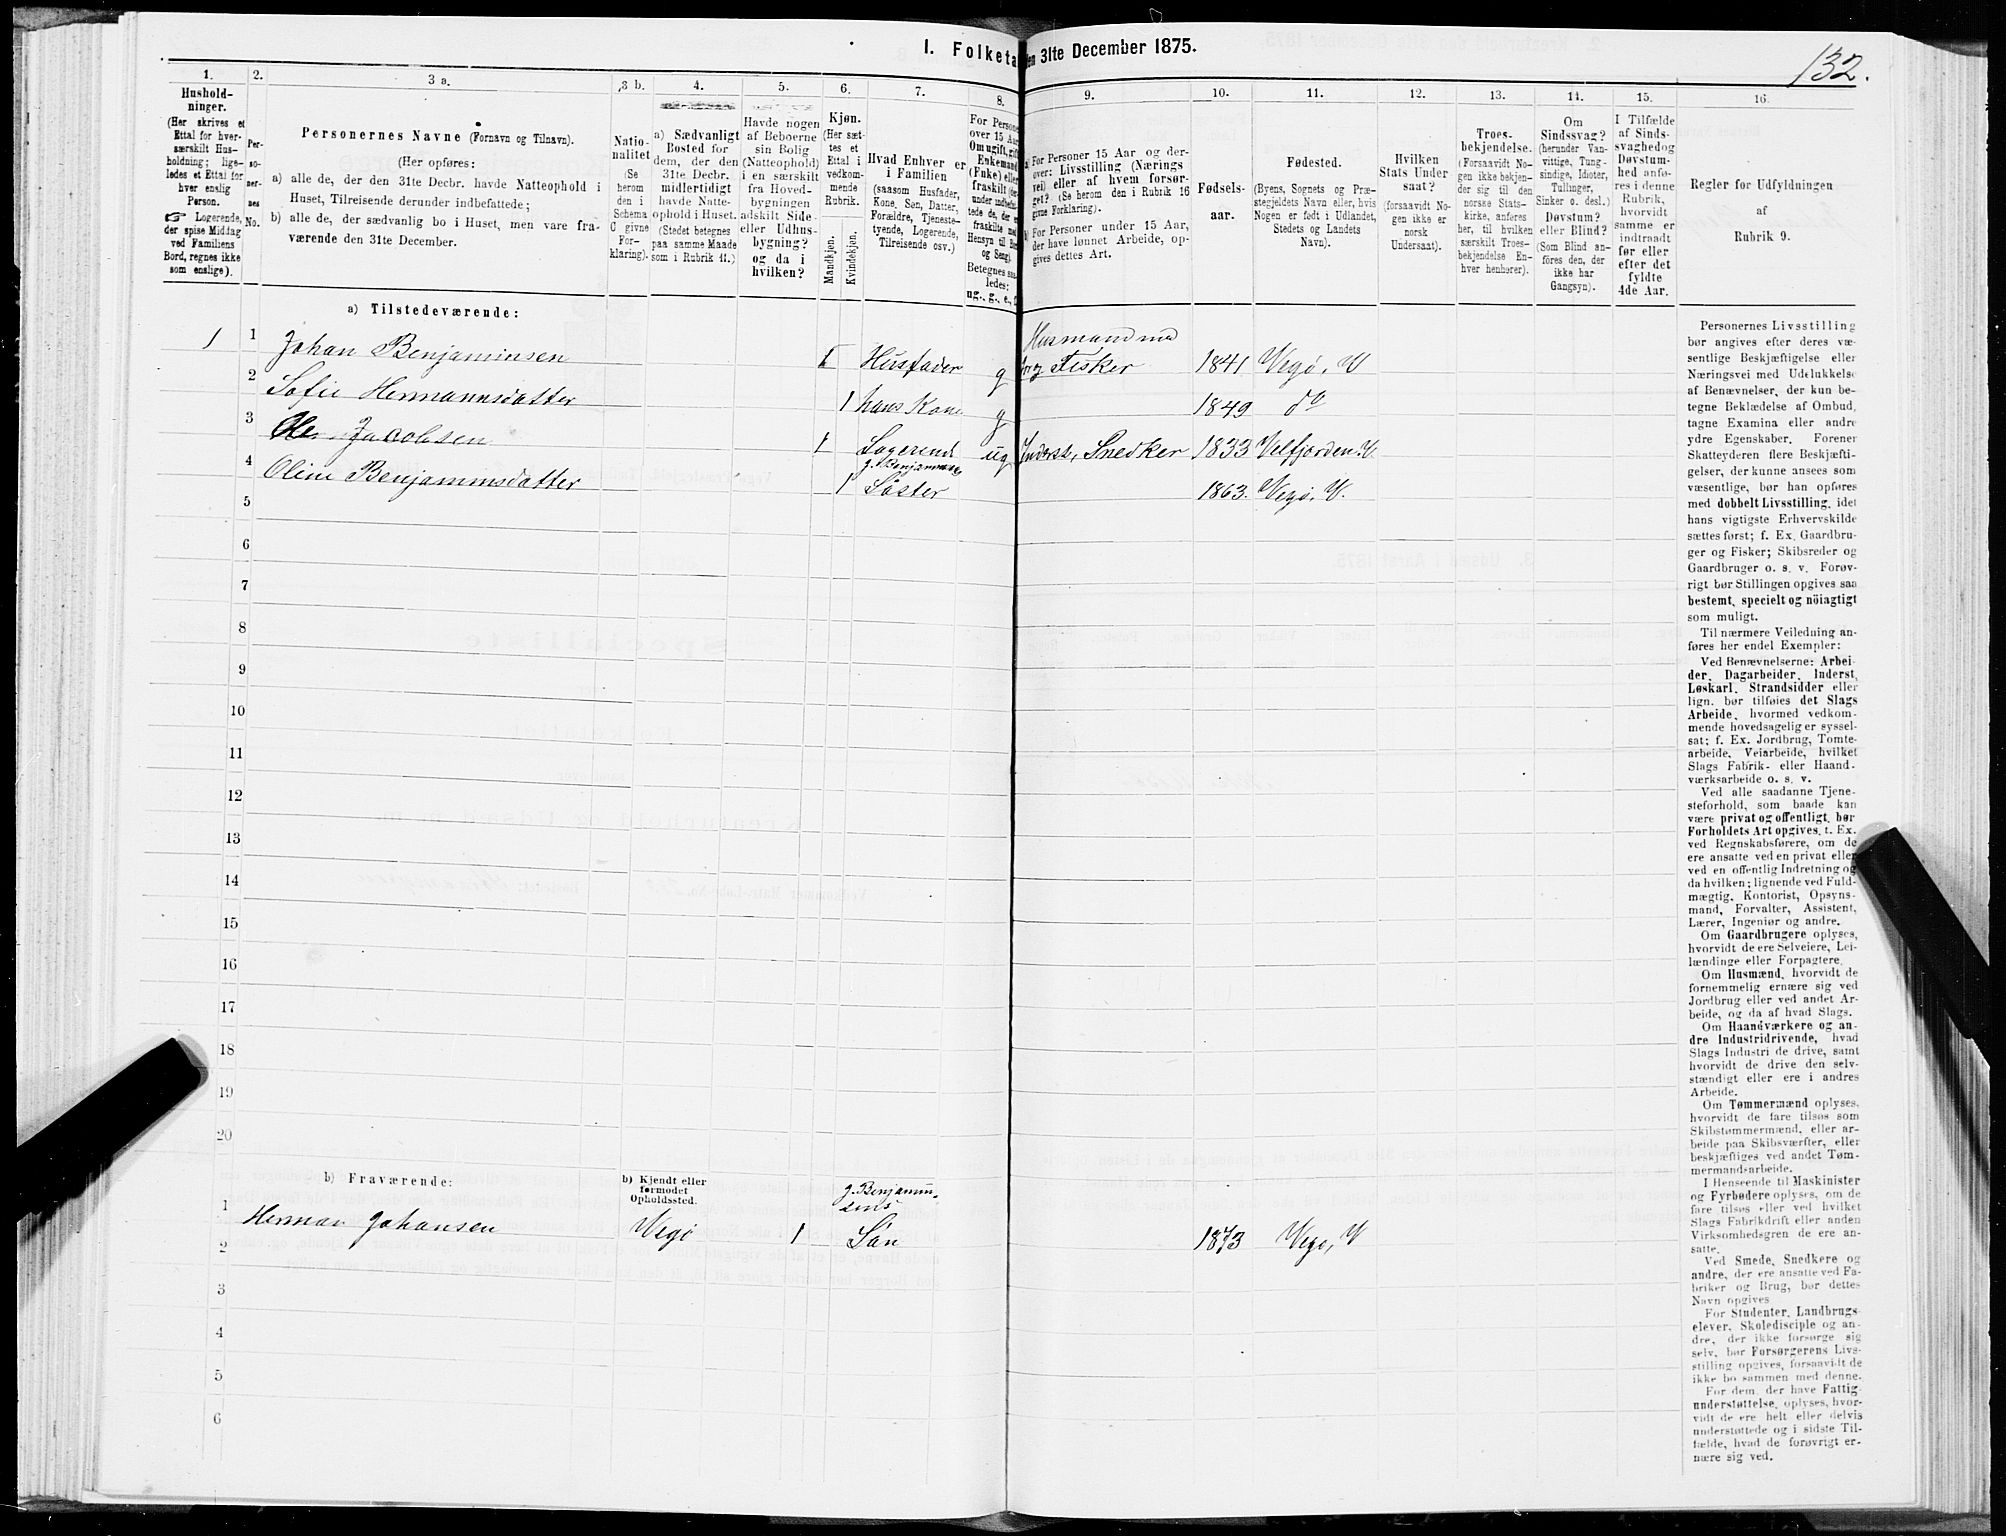 I. Folketa
en 31te December 1875.
132.
1.
Hushold-
ninger.
(Her skrives et
Ettal for hver-
særskilt Hus-
holdning; lige-
ledes et Ettal for
hver enslig
Person.
☞ Logerende,
der spise Middag
ved Familiens
Bord, regnes ikke
som enslige).
2.
Per-
so-
ner-
nes
No.
3 a.
Personernes Navne (Fornavn og Tilnavn).
(Her opføres:
a) alle de, der den 31te Decbr. havde Natteophold i
Huset, Tilreisende derunder indbefattede;
b) alle de, der sædvanlig bo i Huset, men vare fra-
værende den 31te December.
3 b.
Natio-
nalitet
(Se
herom
den i
Schema
C givne
For-
klaring).
4.
a) Sædvanligt
Bosted for
dem, der den
31te Decbr.
midlertidigt
havde Natte-
ophold i Huset.
(Stedet betegnes
paa samme Maade
som i Rubrik 11.)
5.
Havde nogen
af Beboerne
sin Bolig
(Natteophold)
i en særskilt
fra Hoved-
bygningen
adskilt Side-
eller Udhus-
bygning?
og da i
hvilken?
6.
Kjøn.
(Her sæt-
tes et
Ettal i
vedkom-
mende
Rubrik.
Mandkjøn.
Kvindekjøn.
7.
Hvad Enhver er
i Familien
(saasom Husfader,
Kone, Søn, Datter,
Forældre, Tjeneste-
tyende, Logerende,
Tilreisende osv.)
8.
For Persone
over 15 Aar
Om ugift, gift
Enkemand
(Enke) eller
fraskilt (der
under indbefat-
tede de, der e
fraskilte med
Hensyn til Bo
og Seng).
Betegnes saa
ledes:
ug., g., e., f.
9.
a) For Personer 15 Aar og der-
over: Livsstilling (Nærings
vei) eller af hvem forsør-
get? (Se herom den i Rubrik 16
givne Forklaring).
b) For Personer under 15 Aar,
der have lønnet Arbeide, op-
gives dettes Art.
10.
Fødsels-
aar.
11.
Fødested.
(Byens, Sognets og Præ-
stegjeldets Navn eller, hvis
Nogen er født i Udlandet,
Stedets og Landets
Navn).
12.
Hvilken
Stats Under
saat?
(forsaavidt No-
gen ikke er
norsk
Undersaat).
13.
Troes-
bekjendelse.
(Forsaavidt No-
gen ikke bekjen-
der sig til den
norske Stats-
kirke, anføres
her, til hvilken
særskilt Troes-
bekjendelse En-
hver henhører).
14.
Om
Sindssvag?
(herunder Van-
vittige, Tung-
sindige, Idioter,
Tullinger,
Sinker o. desl.)
Døvstum?
eller Blind?
(Som Blind an-
føres den, der
ikke har
Gangsyn).
15.
I Tilfælde
af Sinds-
svaghed og
Døvstum-
hed anfø-
res i denne
Rubrik,
hvorvidt
samme er
indtraadt
før eller
efter det
fyldte
4de Aar.
16.
Regler for Udfyldningen
af
Rubrik 9.
a) Tilstedeværende:
1 1 Johan Benjaminsen 1 Husfader g Husmand med
Jord Fisker 1841 Vegø, V
2 Sofie Hermannsdatter 1 hans Kone g 1849 do
3 Ole Jacobsen 1 Logerend ug Inderst, Snedker 1833 Velfjorden V.
4 Oline Benjaminsdatter 1 g. Benjaminsens
Søster 1863. Vegø, V.
5
6
7
8
9
10
11
12
13
14
15
16
17
18
19
20
b) Fraværende:
b) Kjendt eller
formodet
Opholdssted.
1 Herman Johansen Vegø 1 g. Benjamin-
sens
Søn 1873 Vegø, V
2
3
4
5
6
Personernes Livsstilling
bør angives efter deres væ-
sentlige Beskjæftigelse eller
Næringsvei med Udelukkelse
af Benævnelser, der kun be-
tegne Beklædelse af Ombud,
tagne Examina eller andre
ydre Egenskaber. Forener
Skatteyderen flere Beskjæfti-
gelser, der kunne ansees som
væsentlige, bør han opføres
med dobbelt Livsstilling, idet
hans vigtigste Erhvervskilde
sættes først; f. Ex. Gaardbru-
ger og Fisker; Skibsreder og
Gaardbruger o. s. v. Forøv-
rigt bør Stillingen opgives saa
bestemt, specielt og nöiagtigt
som muligt.
Til nærmere Veiledning an-
føres her endel Exempler:
Ved Benævnelserne: Arbei-
der, Dagarbeider, Inderst,
Løskarl, Strandsidder eller
lign. bør tilføies det Slags
Arbeide, hvormed vedkom-
mende hovedsagelig er syssel-
sat; f. Ex. Jordbrug, Tomte-
arbeide, Veiarbeide, hvilket
Slags Fabrik- eller Haand-
værksarbeide o. s. v.
Ved alle saadanne Tjene-
steforhold, som baade kan
være privat og offentligt, bør
Forholdets Art opgives, t. Ex.
ved Regnskabsførere, om de
ere ansatte ved en privat eller
ved en offentlig Indretning og
da hvilken; lignende ved Fuld-
mægtig, Kontorist, Opsyns-
mand, Forvalter, Assistent,
Lærer, Ingeniør og andre.
Om Gaardbrugere oplyses,
hvorvidt de ere Selveiere, Lei-
lændinge eller Forpagtere.
Om Husmænd, hvorvidt de
fornemmelig ernære sig ved
Jordbrug eller ved andet Ar-
beide, og da af hvad Slags.
Om Haandværkere og an-
dre Industridrivende, hvad
Slags Industri de drive, samt
hvorvidt de drive den selv-
stændigt eller ere i andres
Arbeide.
Om Tømmermænd oplyses,
hvorvidt de fare tilsøs som
Skibstømmermænd, eller ar-
beide paa Skibsværfter, eller
beskjæftiges ved andet Tøm-
mermandsarbeide.
I Henseende til Maskinister
og Fyrbødere oplyses, om de
fare tilsøs eller ved hvilket
Slags Fabrikdrift eller anden
Virksomhedsgren de ere an-
satte.
Ved Smede, Snedkere og
andre, der ere ansatte ved Fa-
briker og Brug, bør dettes
Navn opgives
For Studenter, Landbrugs-
elever, Skoledisciple og an-
dre, der ikke forsørge sig
selv, bør Forsørgerens Livs-
stilling opgives, forsaavidt de
ikke bo sammen med denne.
For dem, der have Fattig-
understøttelse, oplyses, hvor-
vidt de ere helt eller delvis
understøttede og i sidste Til-
fælde, hvad de forøvrigt er-
nære sig ved.